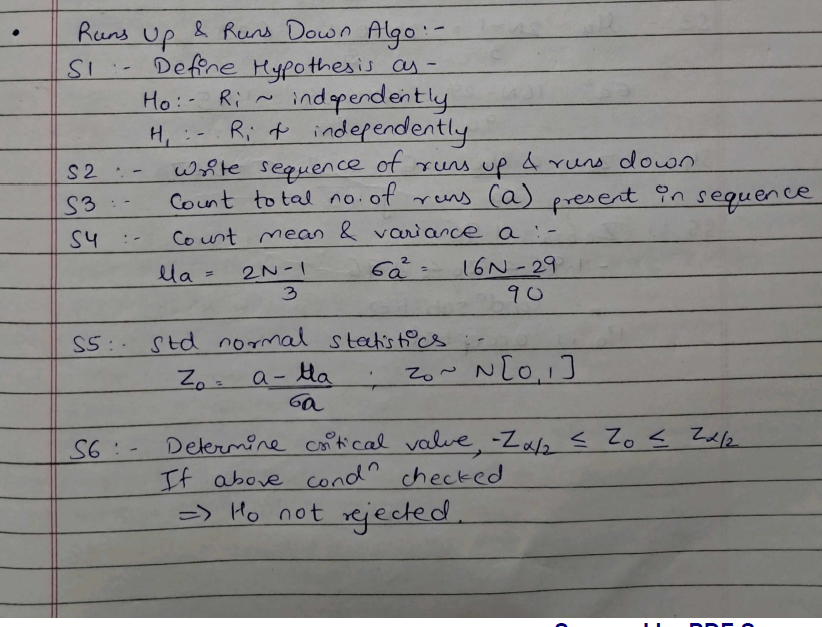 • Runs Up & Runs Down Algo:-
S1 :- Define Hypothesis as -
H₀ :- Rᵢ ~ independently
H₁ :- Rᵢ ≁ independently
S2 :- Write sequence of runs up & runs down
S3 :- Count total no. of runs (a) present in sequence
S4 :- Count mean & variance a :-
μa = (2N-1)/3 σa² = (16N-29)/90
S5 :- Std normal statistics :-
Z₀ = (a - μa)/σa ; Z₀ ~ N[0,1]
S6 :- Determine critical value, -Zα/2 ≤ Z₀ ≤ Zα/2
If above condⁿ checked
=> H₀ not rejected.